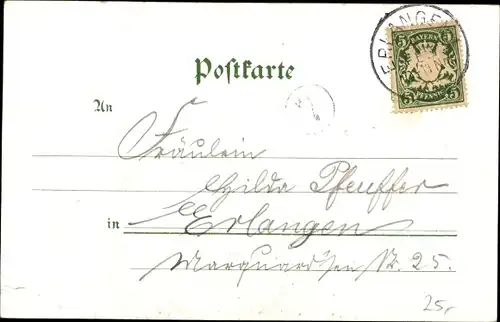 ERLANGEN
BAYERN
5 5
5 5
Postkarte
An
Fräulein
Hilda Pfeuffer
in Erlangen
Marquardsen Str. 25.
25,-